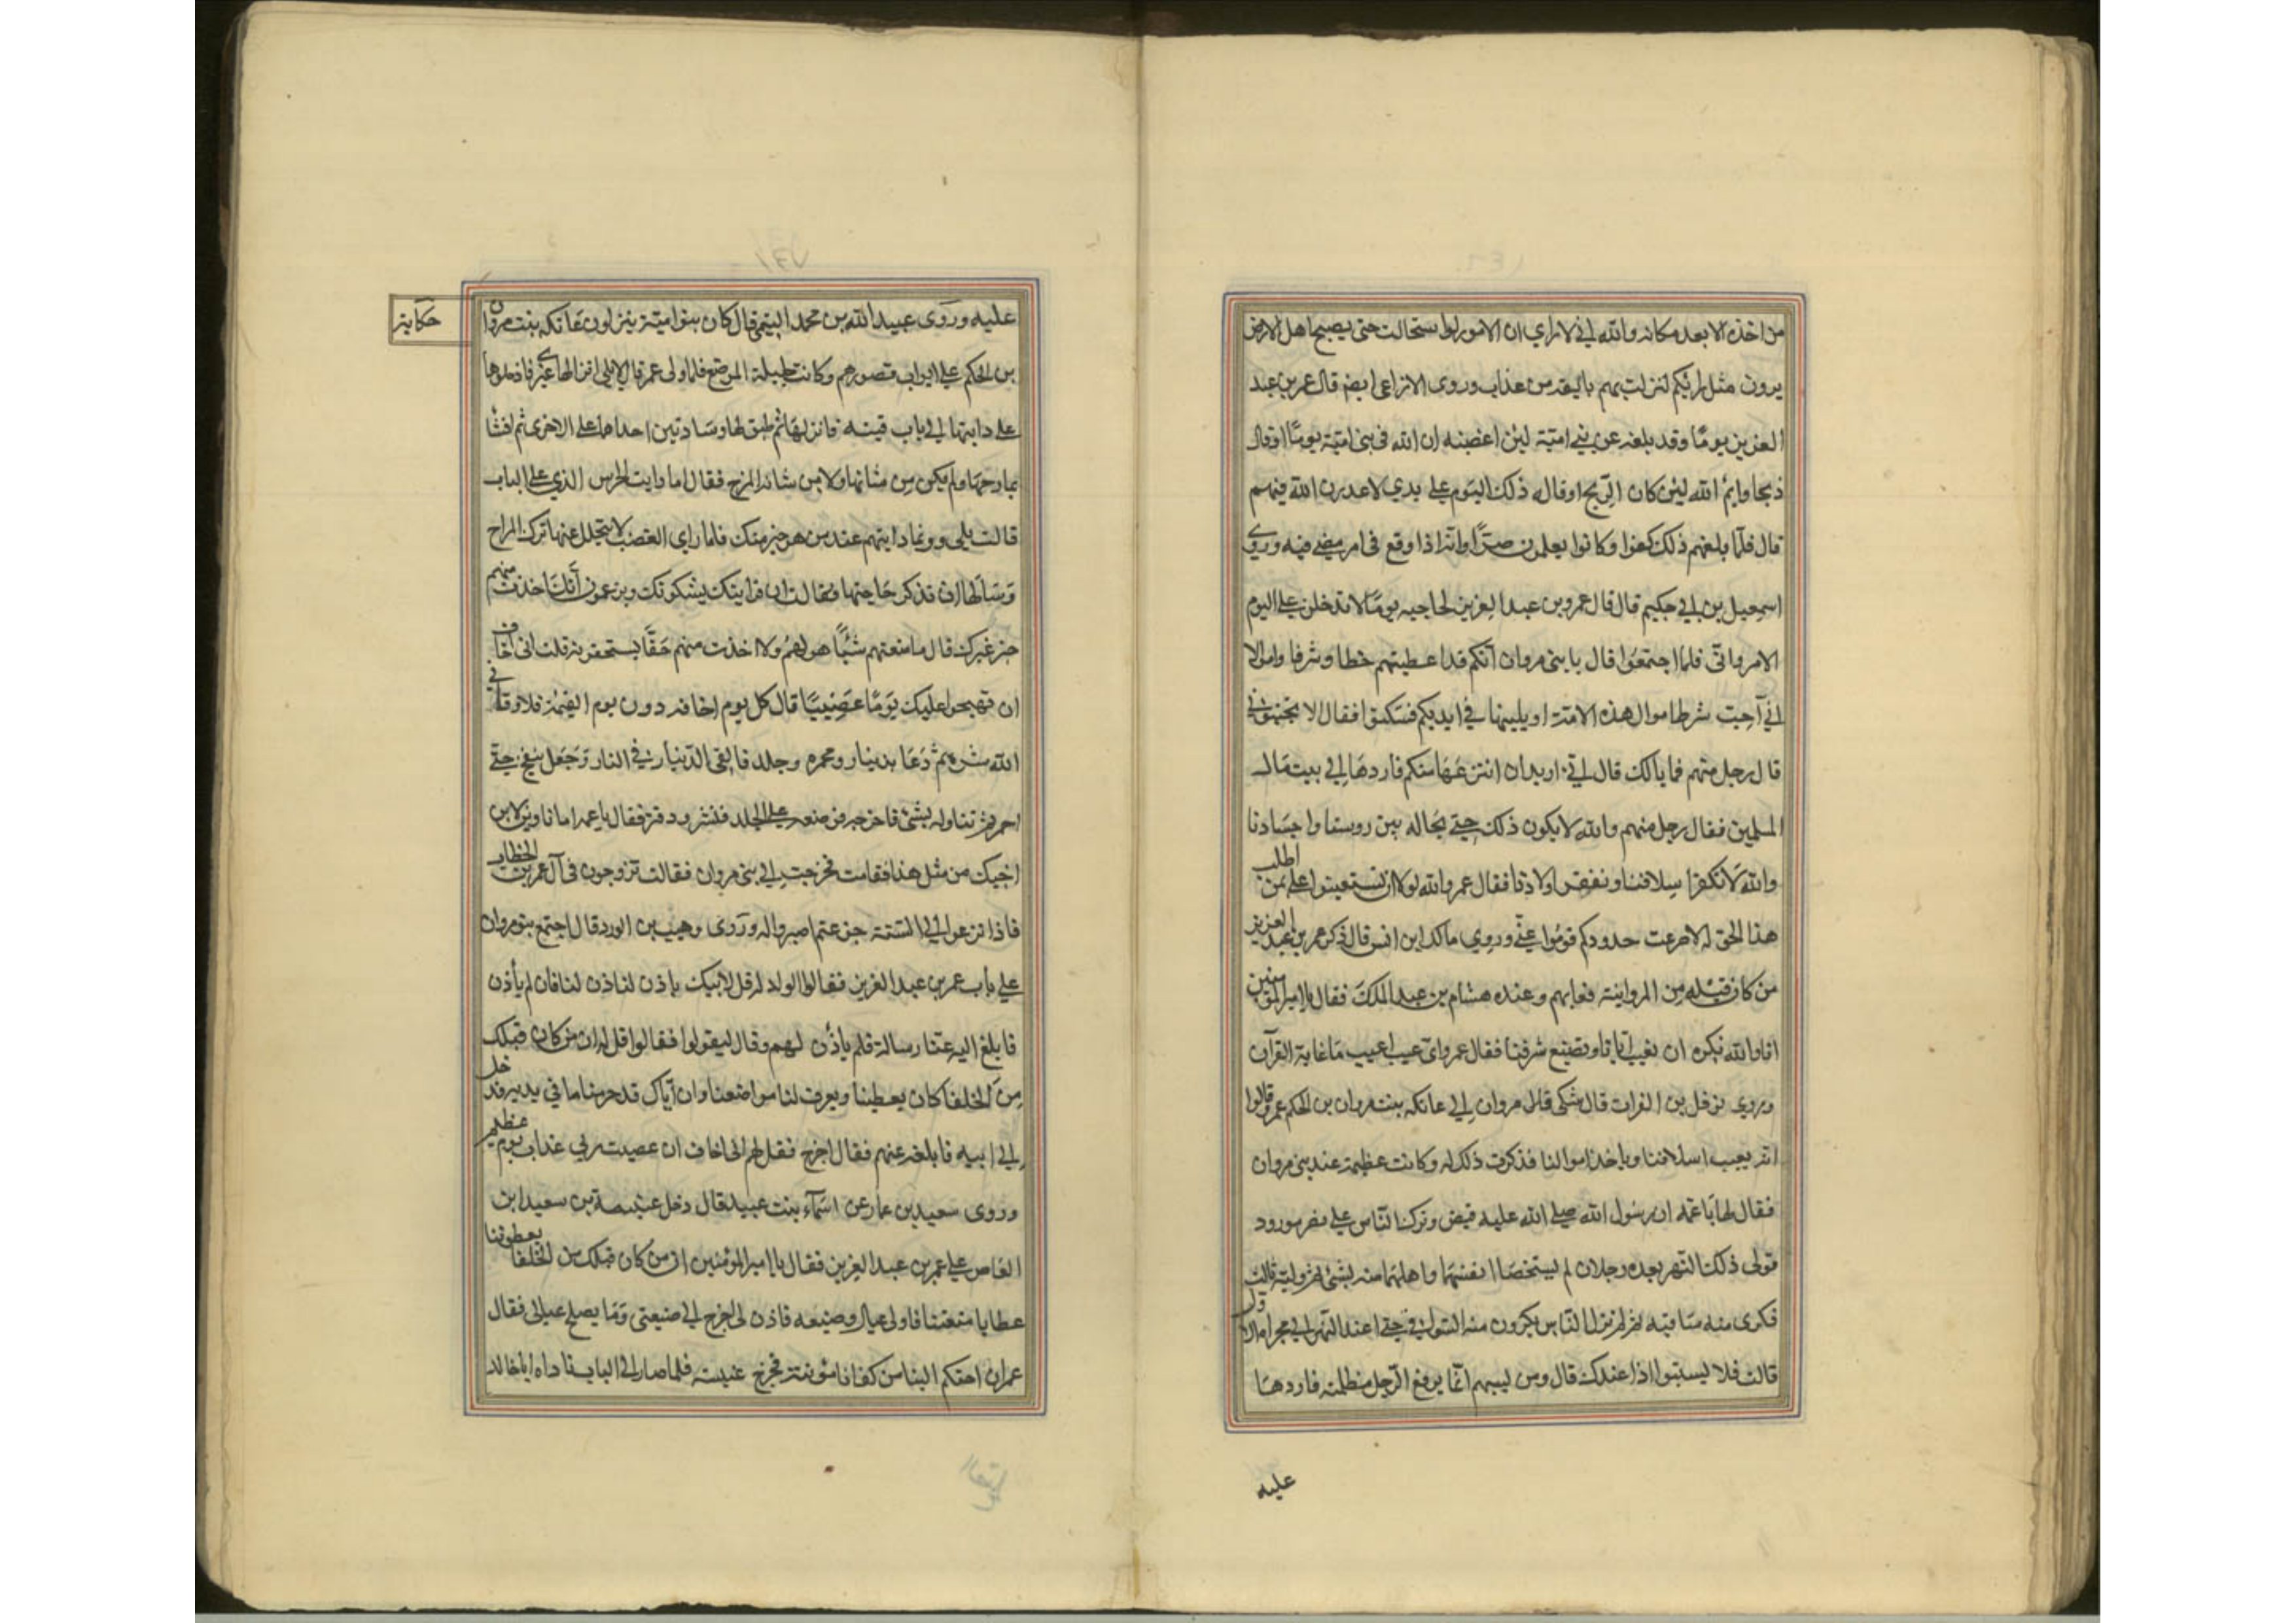 من اخذه الا بعد مكانه والله اني لاراي ان الامور لو استحالت حتى يصبح اهل الارض
يرون مثل رايكم لنزلت بهم باليقد من عذاب وروى الاوزاعي ايضا قال عمر بن عبد
العزيز يومًا وقد بلغه عن بني امية لئن اغضبه ان الله في بني امية يومًا اوقال
ذبحا وايم الله لئن كان الذبح اوقاله ذلك اليوم على يدي لاعدرن الله فيهم
قال فلمّا بلغهم ذلك كفوا وكانوا يعلمون وانه اذا وقع في امر مضى فيه وروى
اسمعيل بن ابي حكيم قال قال عمرو بن عبد العزيز لحاجبه يومًا لا تدخلن على اليوم
الا مرواني فلما اجتمعوا قال يا بنى مروان انكم قد اعطيتم خطا وشرفا واموالا
اني احب شرط اموال هذه الامة او يليها في ايديكم فسكتوا فقال الا
قال رجل منهم فما بالك قال اني اريد ان انتزعها منكم فاردها الى بيت مال
المسلمين فقال رجل منهم والله لا يكون ذلك حتى يحاله بين روسنا واجسادنا
والله لا نكفر اسلافنا ونفقر اولادنا فقال عمر والله لولا ان تستعينوا على بمن اطلب
هذا الحق له لاضرعت خدودكم قوموا عني وروي مالك ابن انس قال ذكر عمر بن عبد العزيز
من كان قبله من المروانية فعابهم وعنده هشام بن عبد الملك فقال يا امير المؤمنين
انا والله نكره ان تعيب ابانا وتضيع شرفنا فقال عمر واى عيب اعيب ما عابه القرآن
وروي نوفل بن الفرات قال شكى مروان الى عاتكه بنت مروان بن الحكم عمر وقالوا
انه يعيب اسلافنا وياخذ اموالنا فذكرت ذلك له وكانت عظيمة عند بنى مروان
فقال لها يا عمه ان رسول الله صلى الله عليه قبض وترك الناس على نهر مورود
فولى ذلك النهر بعده رجلان لم يستخصا انفسهما واهلهما منه بشئ ثم وليه ثالث
فكرى منه ساقيه ثم لم تزل الناس يكرون منه السواقي حتى
قالت فلا يسبّوا اذا عندك قال ومن يسبهم انما يرفع الرجل مظلمته فاردها
عليه
عليه وروى عبيد الله بن محمد التيمي قال كان بنو امية ينزلون عاتكه بنت مروان
حكاية
بن الحكم على ابواب قصورهم وكانت جليلة الموضع فلما ولى عمر قال لا يلي انزالها غيري فادخلوها
على دابتها الى باب قبته فانزلها ثم طبق لها وسادتين احداهما على الاخرى ثم انشا
يمازحها ولم يكن من شانها ولا من شانه المزح فقال اما رايت الحرس الذي على الباب
قالت بلى وربما رايتهم عند من هو خير منك فلما راى الغضب لا يتحلل عنها ترك المزاح
وسالها ان تذكر حاجتها فقالت ان قرابتك يشكونك ويزعمون انك اخذت منهم
خير غيرك قال ما منعتهم شيئًا هو لهم ولا اخذت منهم حقًّا يستحقونه قلت انى اخاف
ان يهيجوا عليك يومًا عصيبًا قال كل يوم اخافه دون يوم القيمة فلا وقاني
الله شره ثم دعا بدينار ومجمره وجلد فالقى الدينار في النار وجعل ينفخ حتى
احمر ثم تناوله بشئ فاخرجه فوضعه على الجلد فنش وفتر فقال يا عمه اما تاوين لابن
اخيك من مثل هذا فقامت فخرجت الى بنى مروان فقالت تزوجون في آل عمر بن الخطاب
فاذا نزعوا الى الشبه جزعتم اصبروا له وروى وهيب بن الورد قال اجتمع بنو مروان
على باب عمر بن عبد العزيز فقالوا لولد له قل لابيك ياذن لنا فان لم يأذن
فابلغ اليه عنا رسالة فلم ياذن لهم وقال ليقولوا فقالوا قل له ان من كان قبلك
من الخلفا كان يعطينا ويعرف لنا مواضعنا وان اباك قد حرمنا ما في يديه فدخل
الى ابيه فابلغه عنهم فقال اخرج فقل لهم انى اخاف ان عصيت ربي عذاب يوم عظيم
وروى سعيد بن عمار عن اسمآء بنت عبيد قال دخل عنبسة بن سعيد ابن
العاص على عمر بن عبد العزيز فقال يا امير المؤمنين ان من كان قبلك من الخلفا يعطوننا
عطايا منعتنا ولى عيال وضيعه فاذن لى اخرج الى ضيعتى وما يصلح عيالى فقال
عمر ان احبكم الينا من كفانا مؤنته فخرج عنبسه فلما صار الى الباب ناداه ابا خالد